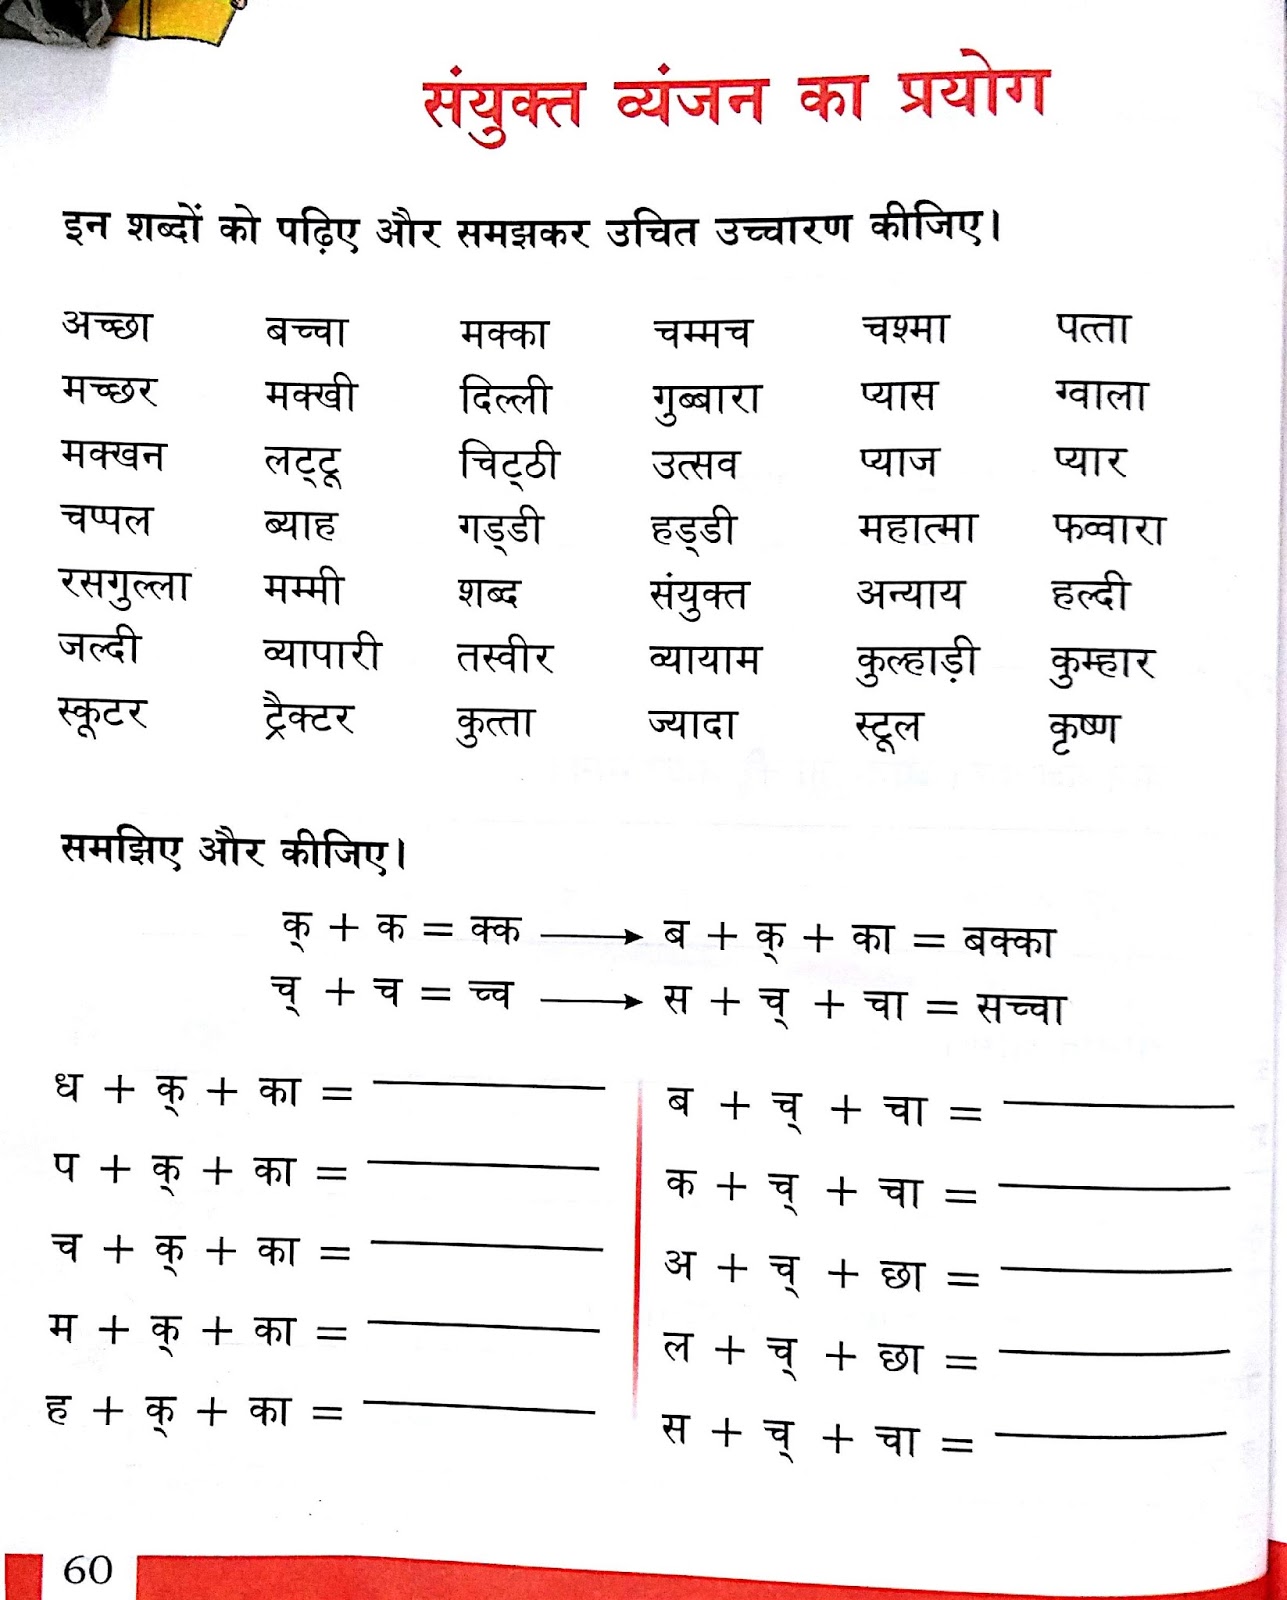 संयुक्त व्यंजन का प्रयोग
इन शब्दों को पढ़िए और समझकर उचित उच्चारण कीजिए।
अच्छा बच्चा मक्का चम्मच चश्मा पत्ता
मच्छर मक्खी दिल्ली गुब्बारा प्यास ग्वाला
मक्खन लट्टू चिट्ठी उत्सव प्याज प्यार
चप्पल ब्याह गड्डी हड्डी महात्मा फव्वारा
रसगुल्ला मम्मी शब्द संयुक्त अन्याय हल्दी
जल्दी व्यापारी तस्वीर व्यायाम कुल्हाड़ी कुम्हार
स्कूटर ट्रैक्टर कुत्ता ज्यादा स्टूल कृष्ण
समझिए और कीजिए।
क् + क = क्क ⟶ ब + क् + का = बक्का
च् + च = च्च ⟶ स + च् + चा = सच्चा
ध + क् + का = 
प + क् + का = 
च + क् + का = 
म + क् + का = 
ह + क् + का = 
ब + च् + चा = 
क + च् + चा = 
अ + च् + छा = 
ल + च् + छा = 
स + च् + चा = 
60